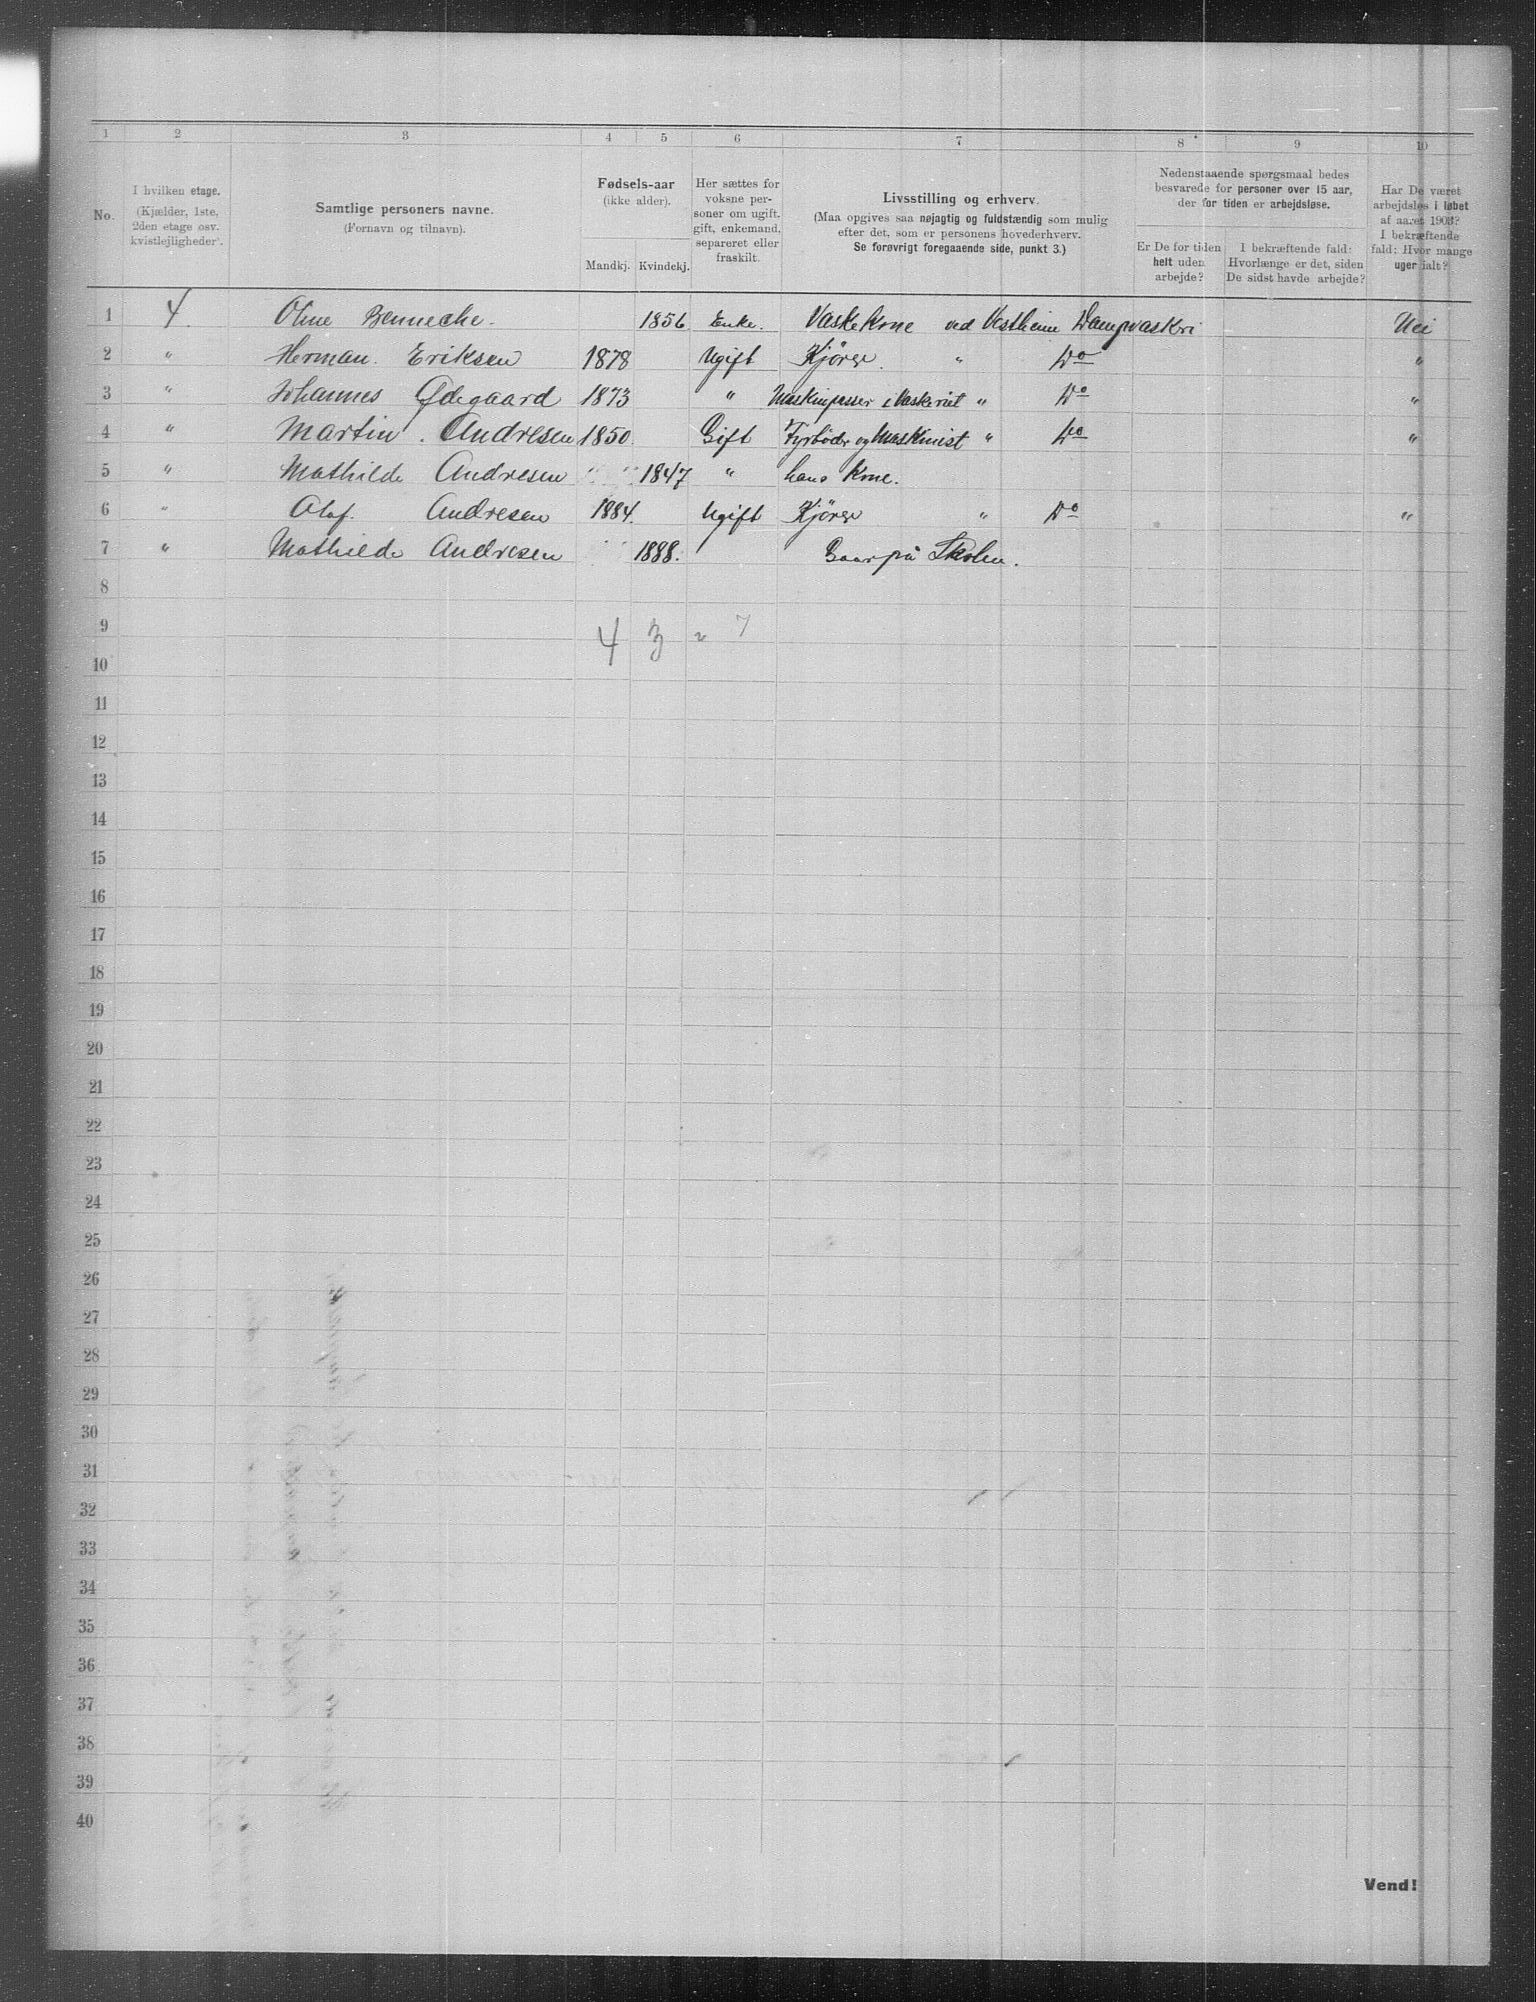 1 2 3 4 5 6 7 8 9 10
No.
I hvilken etage.
(Kjælder, 1ste,
2den etage osv.
kvistlejligheder).
Samtlige personers navne.
(Fornavn og tilnavn).
Fødsels-aar
(ikke alder).
Mandkj. Kvindekj.
Her sættes for
voksne per-
soner om ugift,
gift, enkemand,
separeret eller
fraskilt.
Livsstilling og erhverv.
(Maa opgives saa nøjagtig og fuldstændig som mulig
efter det, som er personens hovederhverv.
Se forøvrigt foregaaende side, punkt 3.)
Nedenstaaende spørgsmaal bedes
besvarede for personer over 15 aar,
der for tiden er arbejdsløse.
Er De for tiden
helt uden
arbejde?
I bekræftende fald:
Hvorlænge er det, siden
De sidst havde arbejde?
Har De været
arbejdsløs i løbet
af aaret 1903?
I bekræftende
fald: Hvor mange
uger ialt?
1 4. Bennecke. 1856 Enke. Vaskekone ved Vestheim Dampvaskri Nei
2 " Herman. Eriksen 1878 Ugift Kjører. " Do "
3 " Johannes Ødegaard 1873 " Maskinpasser i Vaskeriet " Do "
4 " Martin. Andresen 1850. Gift Fyrbøder og Maskinist " Do "
5 " Mathilde Andresen " " 1847 " hans Kone.
6 " Olaf. Andresen 1884. Ugift Kjører " Do "
7 " Mathilde Andresen 1888. Gaar på Skolen.
8
9 4 3 " 7
10
11
12
13
14
15
16
17
18
19
20
21
22
23
24
25
26
27
28
29
30
31
32
33
34
35
36
37
38
39
40
Vend!